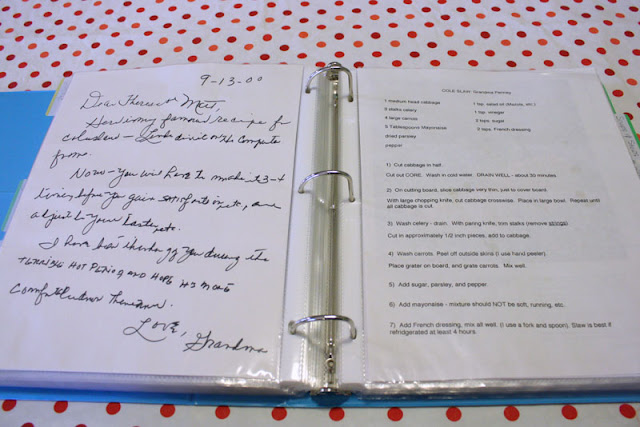 9-13-00
Dear Theresa & Matt,
Here is my famous recipe for
coleslaw - Linda did it on the computer
from.
Now - you will have to make it 3-4
times before you gain satisfaction, etc, and
adjust to your taste, etc.
I have been thinking of you during the
terrible hot period and hope
Love,
Grandma
COLE SLAW: Grandma
1 medium head cabbage
5 stalks celery
4 large carrots
5 Tablespoons Mayonnaise
dried parsley
pepper
1 tsp. salad oil
1 tsp. vinegar
2 tsps. sugar
3 tsps. French dressing
1) Cut cabbage in half.
Cut out CORE. Wash in cold water. DRAIN WELL - about 30 minutes
2) On cutting board, slice cabbage very thin, just to cover board.
With large chopping knife, cut cabbage crosswise. Place in large bowl. Repeat until
all cabbage is cut.
3) Wash celery - drain. With paring knife, trim stalks (remove strings).
Cut in approximately 1/2 inch pieces, add to cabbage.
4) Wash carrots. Peel off outside skins (I use hand peeler).
Place grater on board, and grate carrots. Mix well.
5) Add sugar, parsley, and pepper.
6) Add mayonaise - mixture should NOT be soft, running, etc.
7) Add French dressing, mix all well. (I use a fork and spoon). Slaw is best if
refridgerated at least 4 hours.